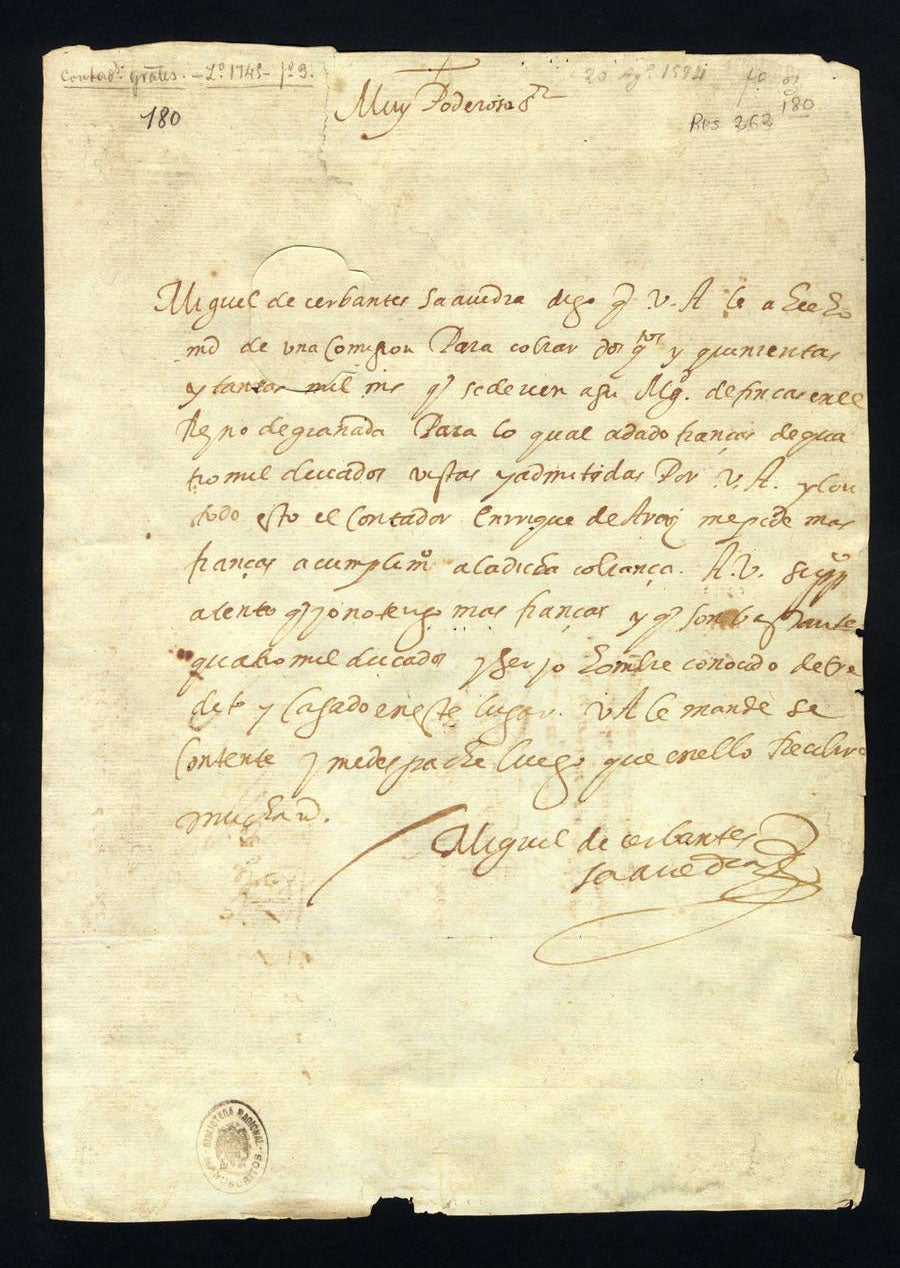 Contad.s Grāles. - Lo. 1745 - fo 9.
20 Agto 1594
fo
180
180
Res 262
Muy Poderoso Sr
Miguel de cerbantes saavedra digo q V. A. le a hecho
md de una comision Para cobrar dos qtos y quinientas
y tantas mil ms q se deven a su Mg. de fincas en el
Reyno de granada Para lo qual a dado fianças de qua
tro mil ducados vistas y admitidas Por V. A. y con
todo esto el Contador Enrrique de Araiz me pide mas
fianças a cumplimo a la dicha cobrança. A. V. A. suppco
atento q yo no tengo mas fianças y q son bastante
quatro mil ducados y ser yo hombre conocido de cre
dito y casado en este lugar. V A le mande se
contente y me despache luego que en ello Recibire
mucha md.
Miguel de cerbantes
saavedra
BIBLIOTECA NACIONAL
MANUSCRITOS